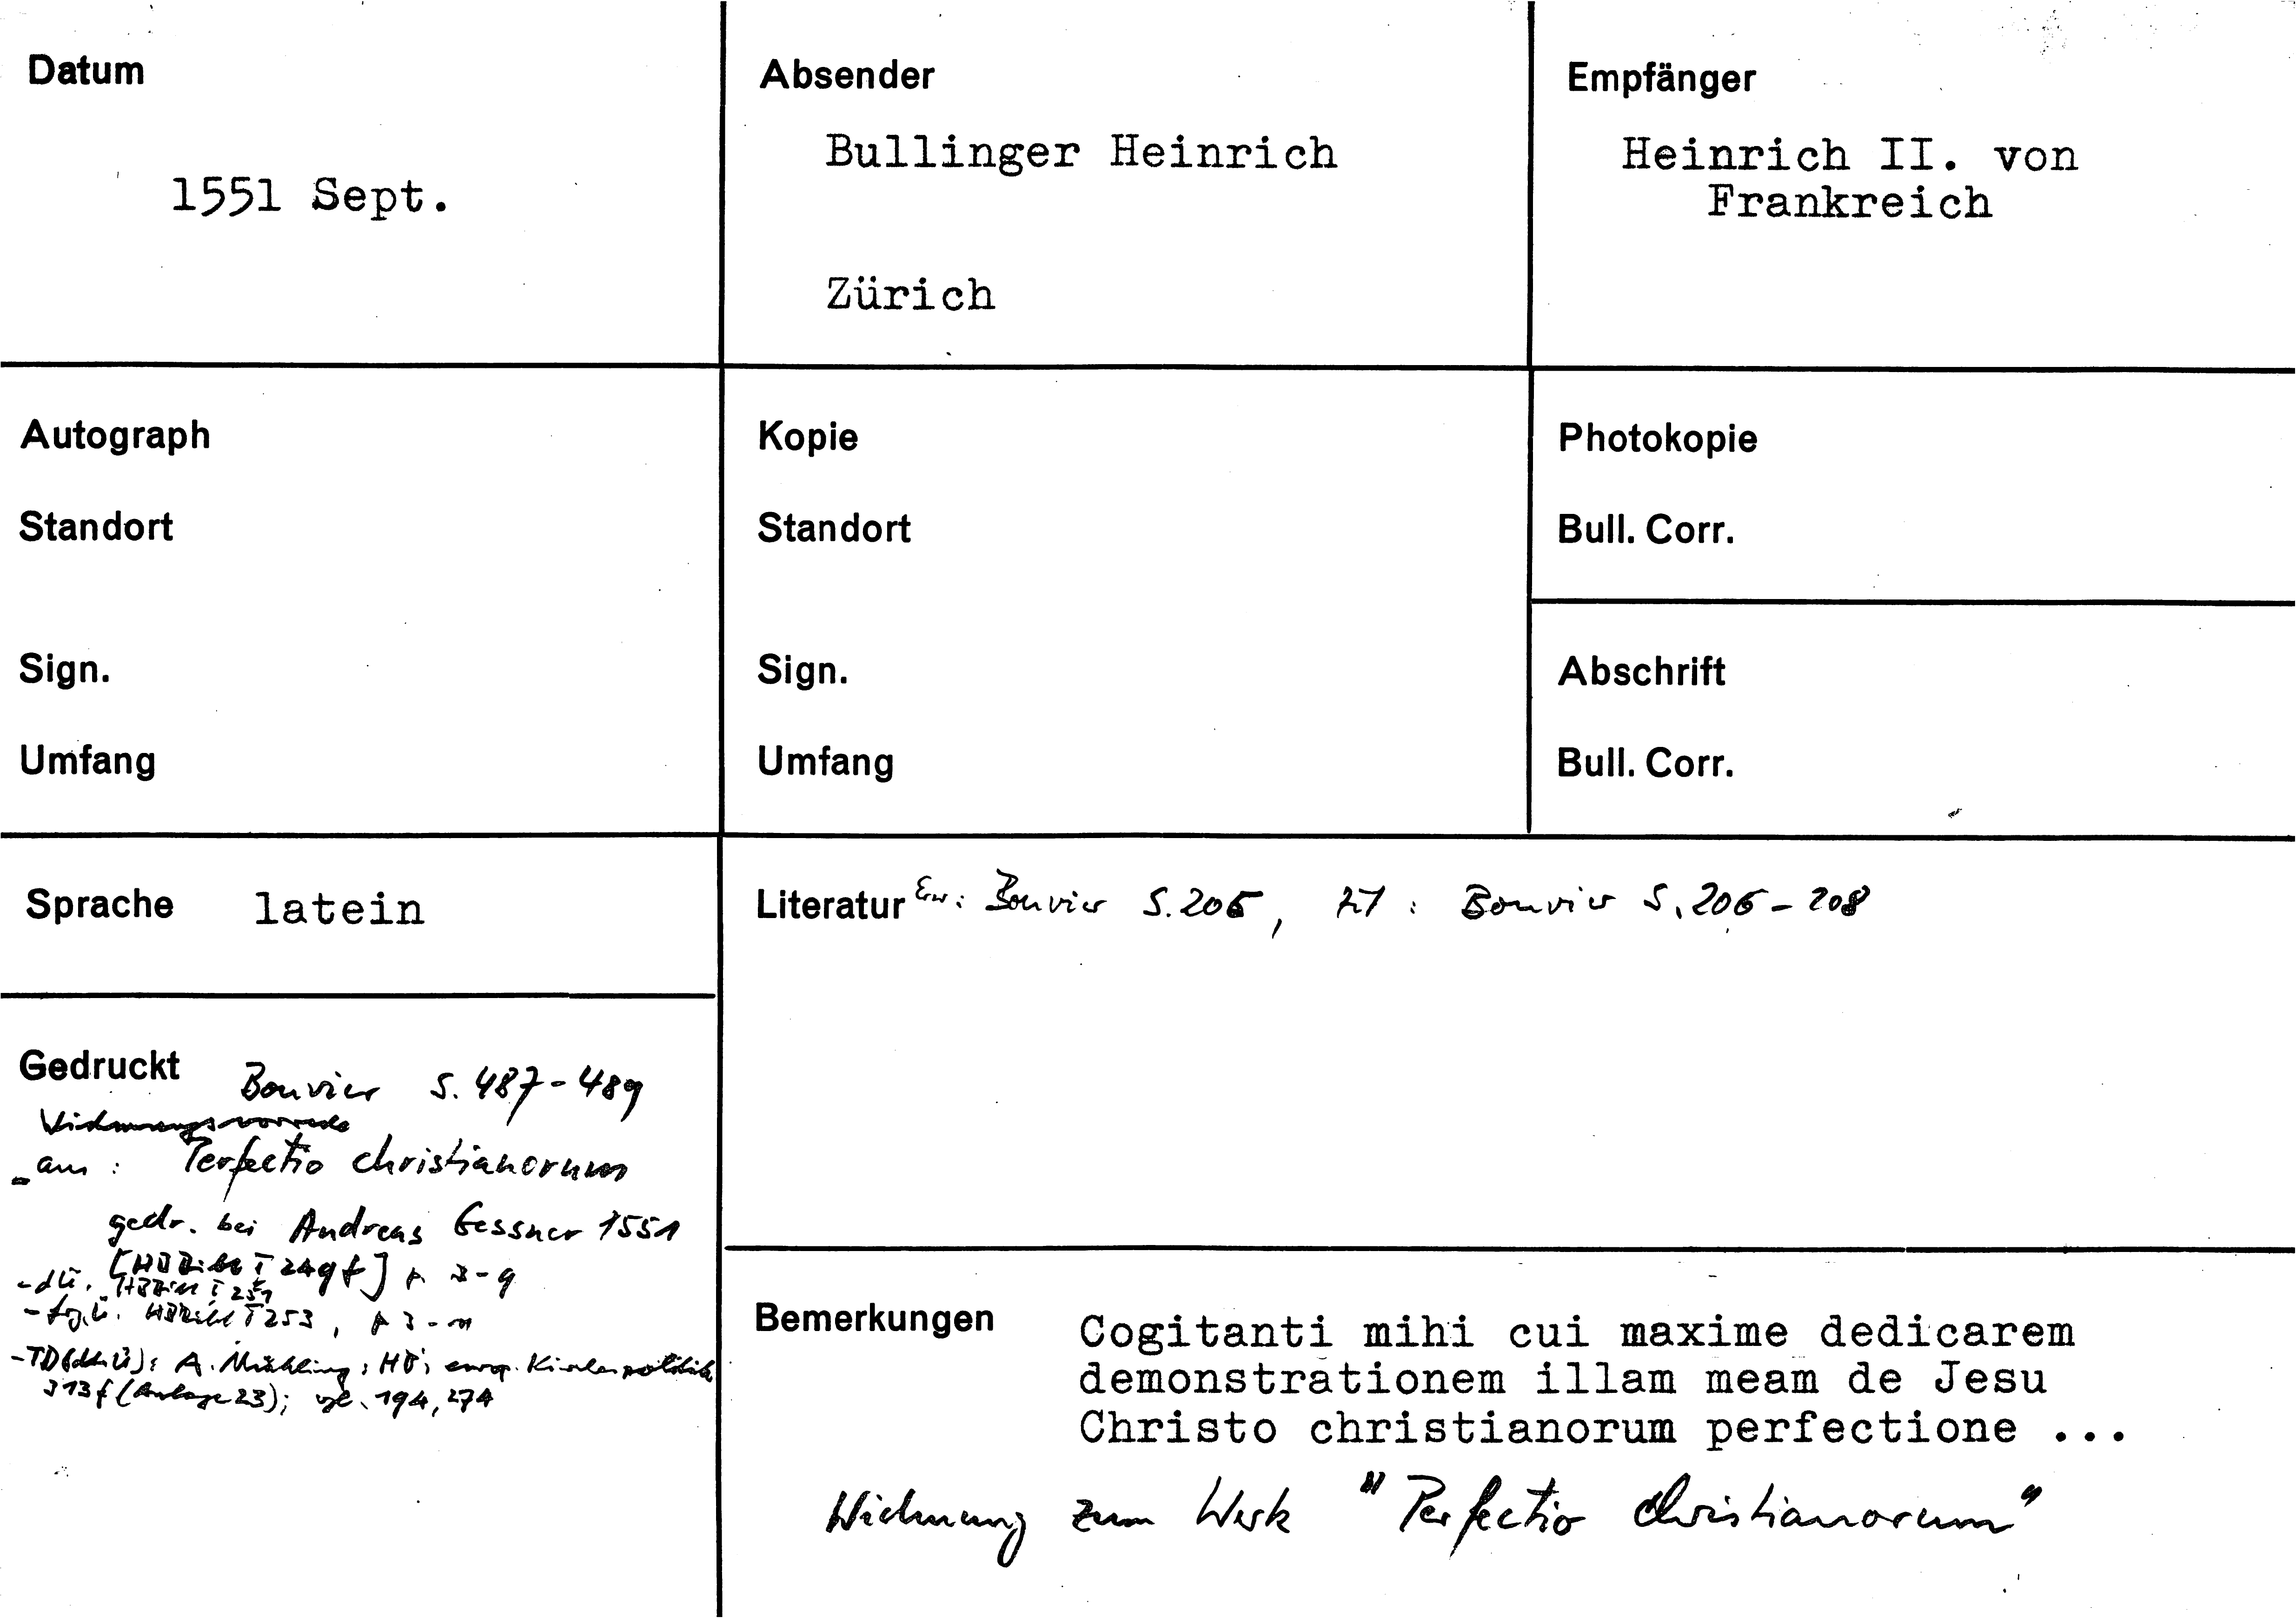 Datum
1551 Sept.
Absender
Bullinger Heinrich
Zürich
Empfänger
Heinrich II. von
Frankreich
Autograph
Standort
Sign.
Umfang
Kopie
Standort
Sign.
Umfang
Photokopie
Bull. Corr.
Abschrift
Bull. Corr.
Sprache latein
Literatur Erw: Bouvier S. 206, Bouvier S. 206-208
Gedruckt Bouvier S. 487-489
Widmungsvorrede
aus: Perfectio christianorum
gedr. bei Andreas Gessner 1551
[HBBibl I 249f] A 3-9
-dt. HBBibl I 251
HBBibl I 253,
A. Mühling: HB, europ. Kirchenpolitik
313f (Anlage 23); vgl. 194, 274
Bemerkungen
Cogitanti mihi cui maxime dedicarem
demonstrationem illam meam de Jesu
Christo christianorum perfectione ...
Widmung zum Werk "Perfectio christianorum"